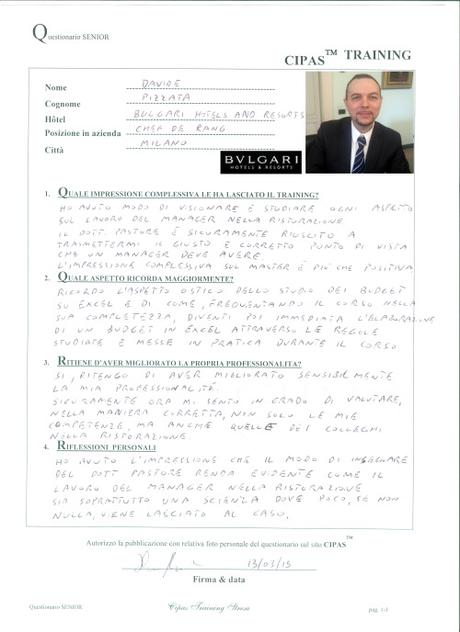 Questionario SENIOR
CIPAS™ TRAINING
Nome DAVIDE
Cognome PIZZATA
Hôtel BULGARI HOTELS AND RESORTS
Posizione in azienda CHEF DE RANG
Città MILANO
BVLGARI
HOTELS & RESORTS
1. QUALE IMPRESSIONE COMPLESSIVA LE HA LASCIATO IL TRAINING?
HO AVUTO MODO DI VISIONARE E STUDIARE OGNI ASPETTO
SUL LAVORO DEL MANAGER NELLA RISTORAZIONE
IL DOTT. PASTORE È SICURAMENTE RIUSCITO A
TRASMETTERMI IL GIUSTO E CORRETTO PUNTO DI VISTA
CHE UN MANAGER DEVE AVERE.
L'IMPRESSIONE COMPLESSIVA SUL MASTER È PIÙ CHE POSITIVA
2. QUALE ASPETTO RICORDA MAGGIORMENTE?
RICORDO L'ASPETTO OSTICO DELLO STUDIO DEI BUDGET
SU EXCEL E DI COME, FREQUENTANDO IL CORSO NELLA
SUA COMPLETEZZA, DIVENTI POI IMMEDIATA L'ELABORAZIONE
DI UN BUDGET IN EXCEL ATTRAVERSO LE REGOLE
STUDIATE E MESSE IN PRATICA DURANTE IL CORSO
3. RITIENE D'AVER MIGLIORATO LA PROPRIA PROFESSIONALITA?
SI, RITENGO DI AVER MIGLIORATO SENSIBILMENTE
LA MIA PROFESSIONALITÀ.
SICURAMENTE ORA MI SENTO IN GRADO DI VALUTARE,
NELLA MANIERA CORRETTA, NON SOLO LE MIE
COMPETENZE, MA ANCHE QUELLE DEI COLLEGHI
NELLA RISTORAZIONE.
4. RIFLESSIONI PERSONALI
HO AVUTO L'IMPRESSIONE CHE IL MODO DI INSEGNARE
DEL DOTT PASTORE RENDA EVIDENTE COME IL
LAVORO DEL MANAGER NELLA RISTORAZIONE
SIA SOPRATTUTTO UNA SCIENZA DOVE POCO, SE NON
NULLA, VIENE LASCIATO AL CASO.
Autorizzo la pubblicazione con relativa foto personale del questionario sul sito CIPAS™
13/03/15
Firma & data
Questionario SENIOR
Cipas Training Stresa
pag. 1-1